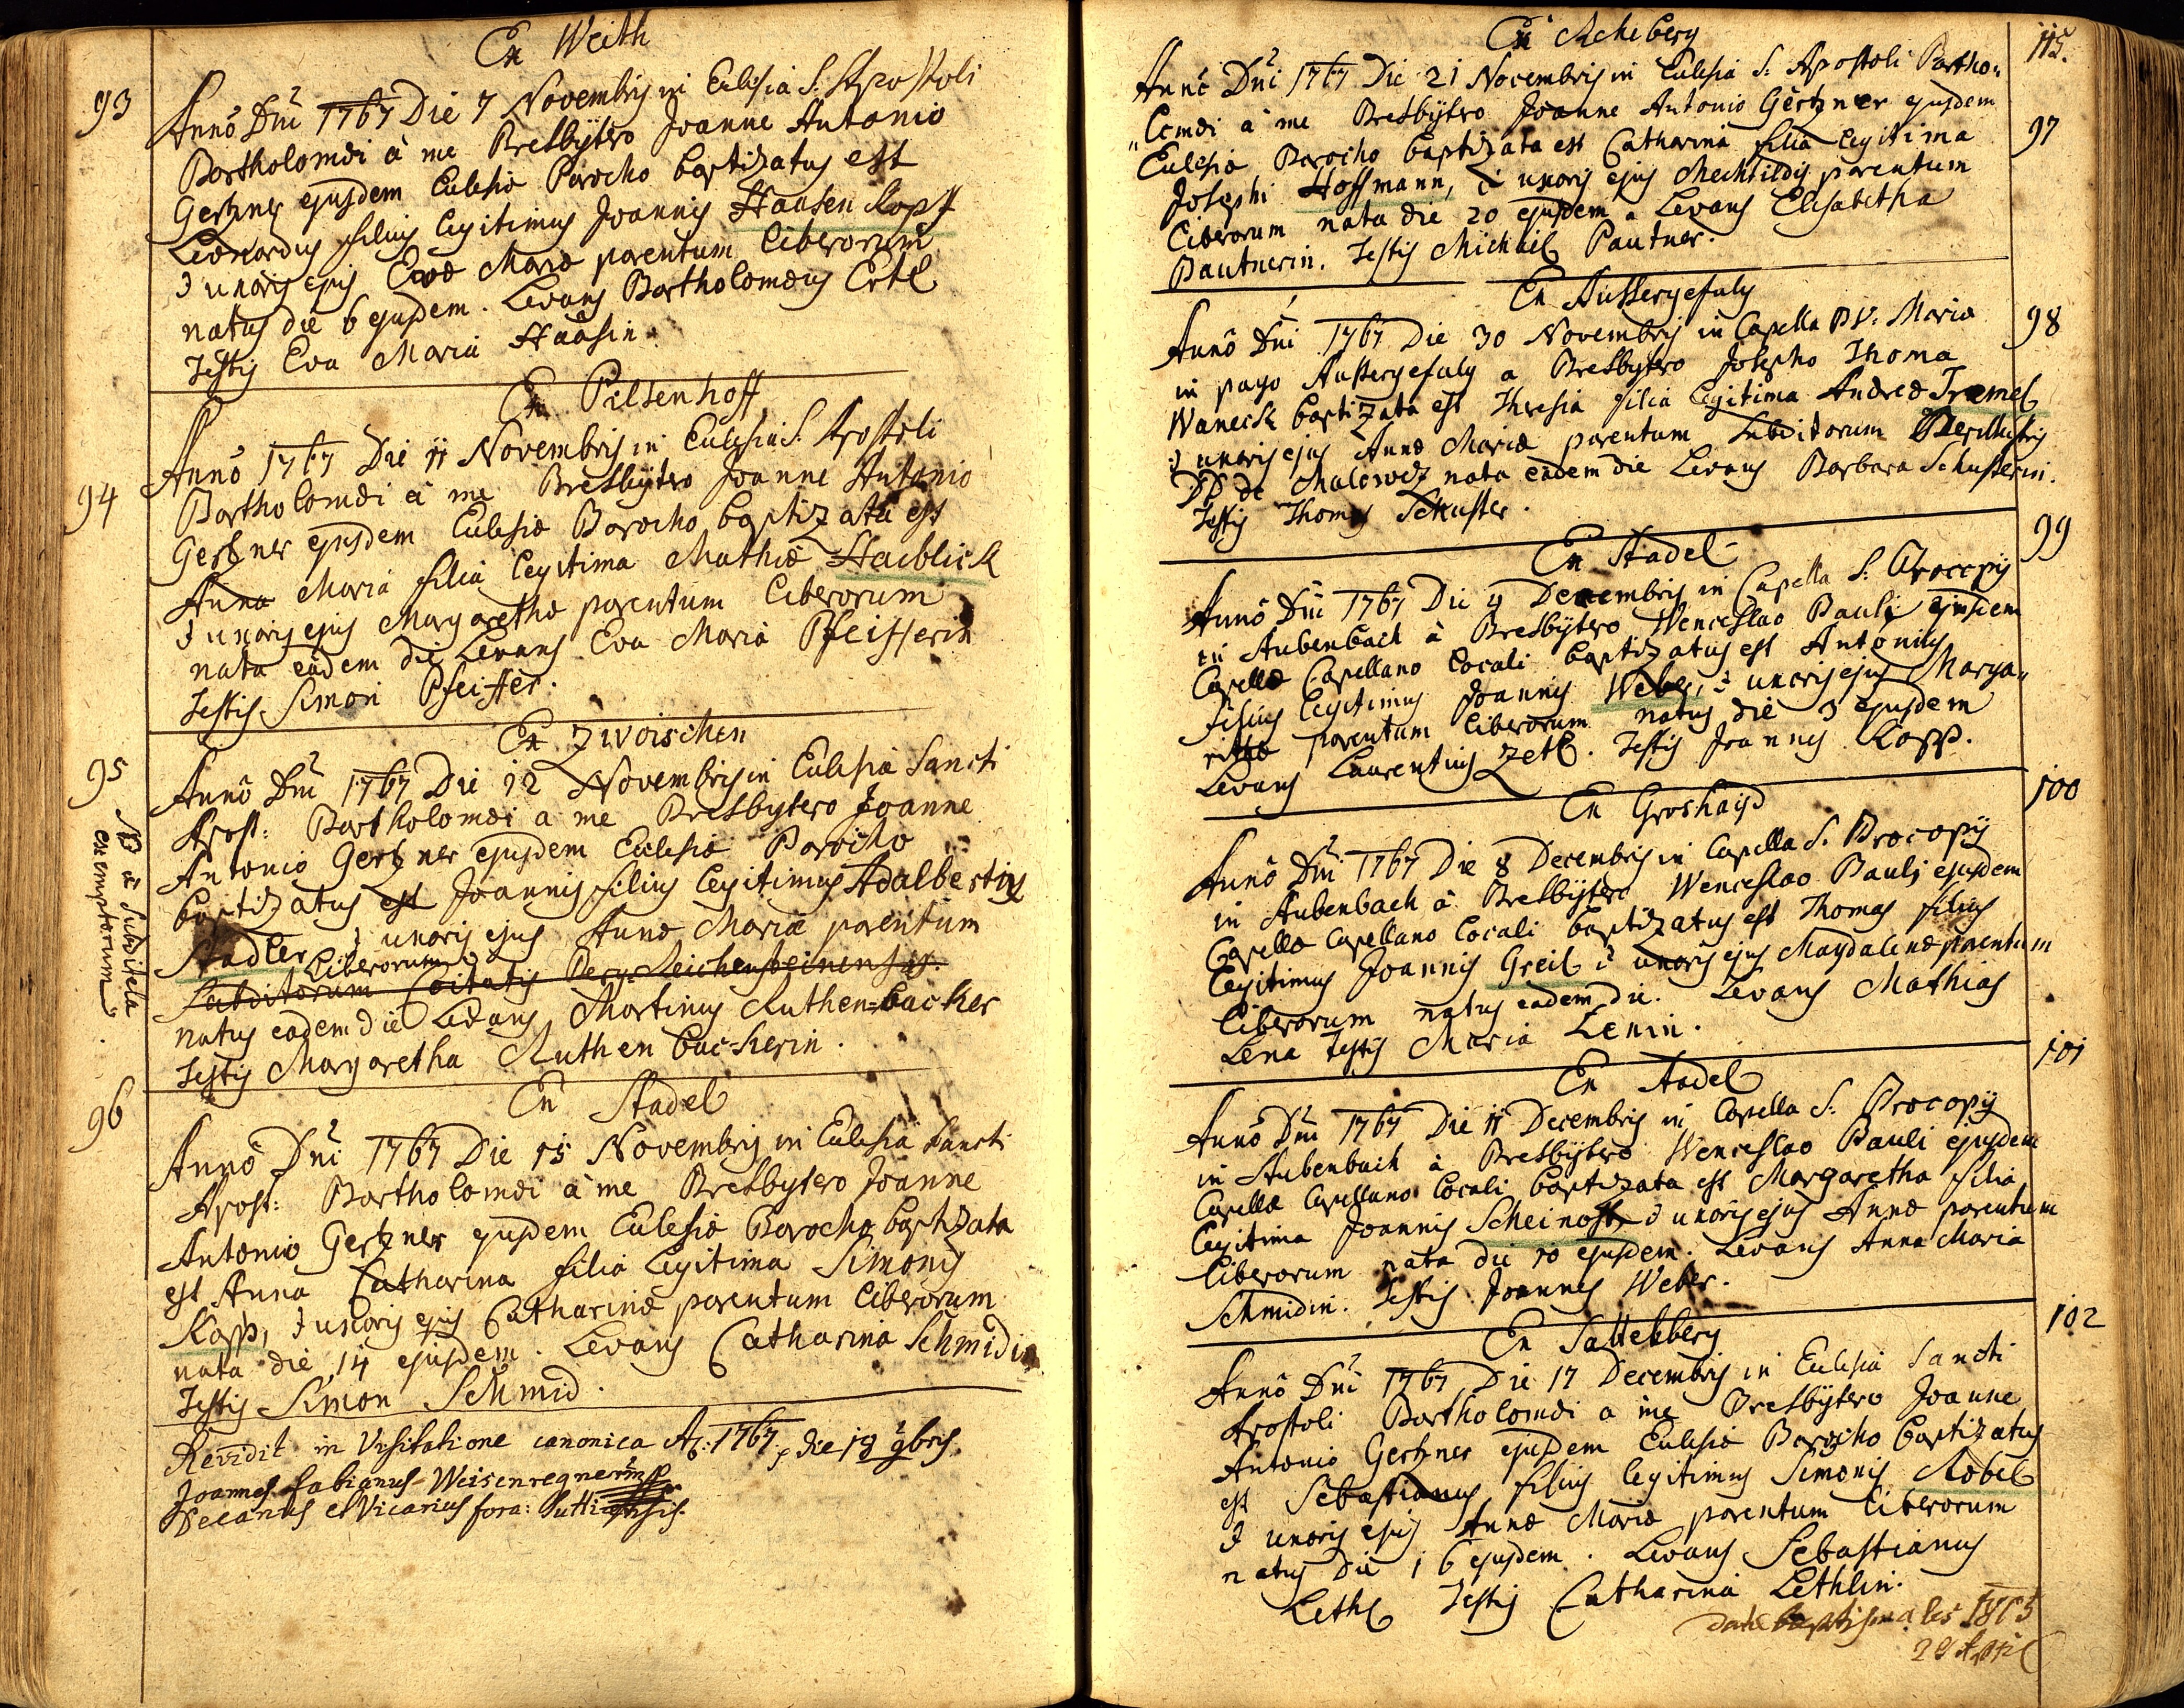 Ex Weith
93
Anno Dni 1767 Die 7 Novembris in Eclesia S. Apostoli
Bartholomæi à me Presbytero Joanne Antonio
Gertzner ejusdem Eclesiæ Parocho baptizatus est
Leonardus filius legitimus Joannis Hausen Kopf
& uxoris ejus Evæ Mariæ parentum liberorum
natus die 6 ejusdem. Levans Bartholomæus Ertl
Testis Eva Maria Haasin.
Ex Pilsenhoff
94
Anno 1767 Die 11 Novembris in Eclesia S. Apostoli
Bartholomæi à me Presbytero Joanne Antonio
Gertzner ejusdem Eclesiæ Parocho baptizata est
Anna Maria filia legitima Mathiæ Haiblick
& uxoris ejus Margarethæ parentum liberorum
nata eadem die Levans Eva Maria Pfeifferin
Testis Simon Pfeiffer.
Ex Zwoischen
95
Anno Dni 1767 Die 12 Novembris in Eclesia Sancti
Apost: Bartholomæi a me Presbytero Joanne
Antonio Gertzner ejusdem Eclesiæ Parocho
baptizatus est Joannis filius legitimus Adalbertus
Stadler & uxoris ejus Annæ Mariæ parentum
liberorum
Subditorum Civitatis Berg-Reichensteinensis.
natus eadem die Levans Martinus Ruthen=backer
Testis Margaretha Ruthenbackerin.
NB à Subditela
exemptorum
Ex Stadel
96
Anno Dni 1767 Die 15 Novembris in Eclesia Sancti
Apost: Bartholomæi à me Presbytero Joanne
Antonio Gertzner ejusdem Eclesiæ Parocho baptizata
est Anna Catharina filia legitima Simonis
Kopp, & uxoris ejus Catharinæ parentum liberorum
nata die 14 ejusdem. Levans Catharina Schmidin
Testis Simon Schmid.
Revidit in Visitatione canonica Aᵒ: 1767, die 18 9bris.
Joannes Fabianus Weisenregner
Decanus et Vicarius fora: Sutticensis.
115.
Ex Acheberg
97
Anno Dni 1767 Die 21 Novembris in Eclesia S: Apostoli Bartho„
„lomæi à me Presbytero Joanne Antonio Gertzner ejusdem
Eclesiæ Parocho baptizata est Catharina filia legitima
Josephi Hoffmann, & uxoris ejus Mechtildis parentum
liberorum nata die 20 ejusdem. Levans Elisabetha
Pautnerin. Testis Michäil Pautner.
Ex Aussergefuly
98
Anno Dni 1767 Die 30 Novembris in Capella B V. Mariæ
in pago Aussergefuly a Presbytero Josepho Thoma
Waneck baptizata est Theresia filia legitima Andreæ Tremel
& uxoris ejus Annæ Mariæ parentum Subditorum Perillustris
DD de Malowez nata eadem die Levans Barbara Schusterin.
Testis Thomas Schuster.
99
Ex Stadel
Anno Dni 1767 Die 4 Decembris in Capella S: Procopij
in Stubenbach à Presbytero Wenceslao Pauli ejusdem
Capellæ Capellano locali baptizatus est Antonius
filius legitimus Joannis Weber, & uxoris ejus Marga„
rethæ parentum liberorum natus die 3 ejusdem
Levans Laurentius Zetl. Testis Joannes Kopp.
100
Ex Groshayd
Anno Dni 1767 Die 8 Decembris in Capella S. Procopij
in Stubenbach à Presbytero Wenceslao Pauli ejusdem
Capellæ Capellano locali baptizatus est Thomas filius
legitimus Joannis Greil & uxoris ejus Magdalenæ parentum
liberorum natus eadem die. Levans Mathias
Lena Testis Maria Lenin.
101
Ex Stadel
Anno Dni 1767 Die 11 Decembris in Capella S: Procopij
in Stubenbach à Presbytero Wenceslao Pauli ejusdem
Capellæ Capellano locali baptizata est Margaretha filia
legitima Joannis Scheinost, & uxoris ejus Annæ parentum
liberorum nata die 10 ejusdem. Levans Anna Maria
Schmidin. Testis Joannes Weber.
102
Ex Sattelberg
Anno Dni 1767 Die 17 Decembris in Eclesia Sancti
Apostoli Bartholomæi a me Presbytero Joanne
Antonio Gertzner ejusdem Eclesiæ Parocho baptizatus
est Sebastianus filius legitimus Simonis Kobel
& uxoris ejus Annæ Mariæ parentum liberorum
natus die 16 ejusdem. Levans Sebastianus
Lethl Testis Catharina Lethlin.
datæ baptismales 1805
29 April